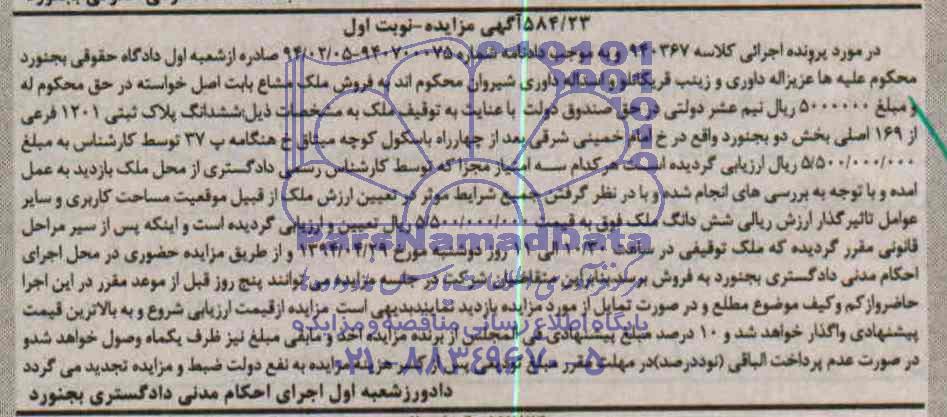 ۵۸۴/۲۳آگهی مزایده-نوبت اول
در مورد پرونده اجرائی کلاسه ۹۴۰۳۶۷ و به موجب دادنامه شماره ۹۴۰۷۰۰۰۷۵-۹۴/۰۲/۰۵ صادره ازشعبه اول دادگاه حقوقی بجنورد
محکوم علیه ها عزیزاله داوری و زینب قریکانلو و اسداله داوری شیروان محکوم اند به فروش ملک مشاع بابت اصل خواسته در حق محکوم له
و مبلغ ۵۰۰۰۰۰۰ ریال نیم عشر دولتی در حق صندوق دولت با عنایت به توقیف ملک به مشخصات ذیل:ششدانگ پلاک ثبتی ۱۲۰۱ فرعی
از ۱۶۹ اصلی بخش دو بجنورد واقع در خ امام خمینی شرقی بعد از چهارراه باسکول کوچه میثاق خ هنگامه پ ۳۷ توسط کارشناس به مبلغ
۵/۵۰۰/۰۰۰/۰۰۰ ریال ارزیابی گردیده است هرکدام سه امتیاز مجزا که توسط کارشناس رسمی دادگستری از محل ملک بازدید به عمل
امده و با توجه به بررسی های انجام شده و با در نظر گرفتن جمیع شرایط موثر در تعیین ارزش ملک از قبیل موقعیت مساحت کاربری و سایر
عوامل تاثیر گذار ارزش ریالی شش دانگ ملک فوق به قیمت ۵/۵۰۰/۰۰۰/۰۰۰ ریال تعیین و ارزیابی گردیده است و اینکه پس از سیر مراحل
قانونی مقرر گردیده که ملک توقیفی در ساعت ۱۰/۳۰ الی ۱۱ روز دوشنبه مورخ و از طریق مزایده حضوری در محل اجرای
احکام مدنی دادگستری بجنورد به فروش برسد بنابراین متقاضیان شرکت در جلسه مزایده می توانند پنج روز قبل از موعد مقرر در این اجرا
حاضرواز کم وکیف موضوع مطلع و در صورت تمایل از مورد مزایده بازدید نمایندبدیهی است مزایده ازقیمت ارزیابی شروع و به بالاترین قیمت
پیشنهادی واگذار خواهد شد و ۱۰ درصد مبلغ پیشنهادی فی المجلس از برنده مزایده اخذ و مابقی مبلغ نیز ظرف یکماه وصول خواهد شدو
در صورت عدم پرداخت الباقی (نوددرصد)در مهلت مقرر مبلغ تودیعی پس از کسر هزینه مزایده به نفع دولت ضبط و مزایده تجدید می گردد
دادورزشعبه اول اجرای احکام مدنی دادگستری بجنورد
ParsNamadData
پایگاه اطلاع رسانی مناقصه و مزایده
۰۲۱-۸۸۳۴۹۶۷۰-۵